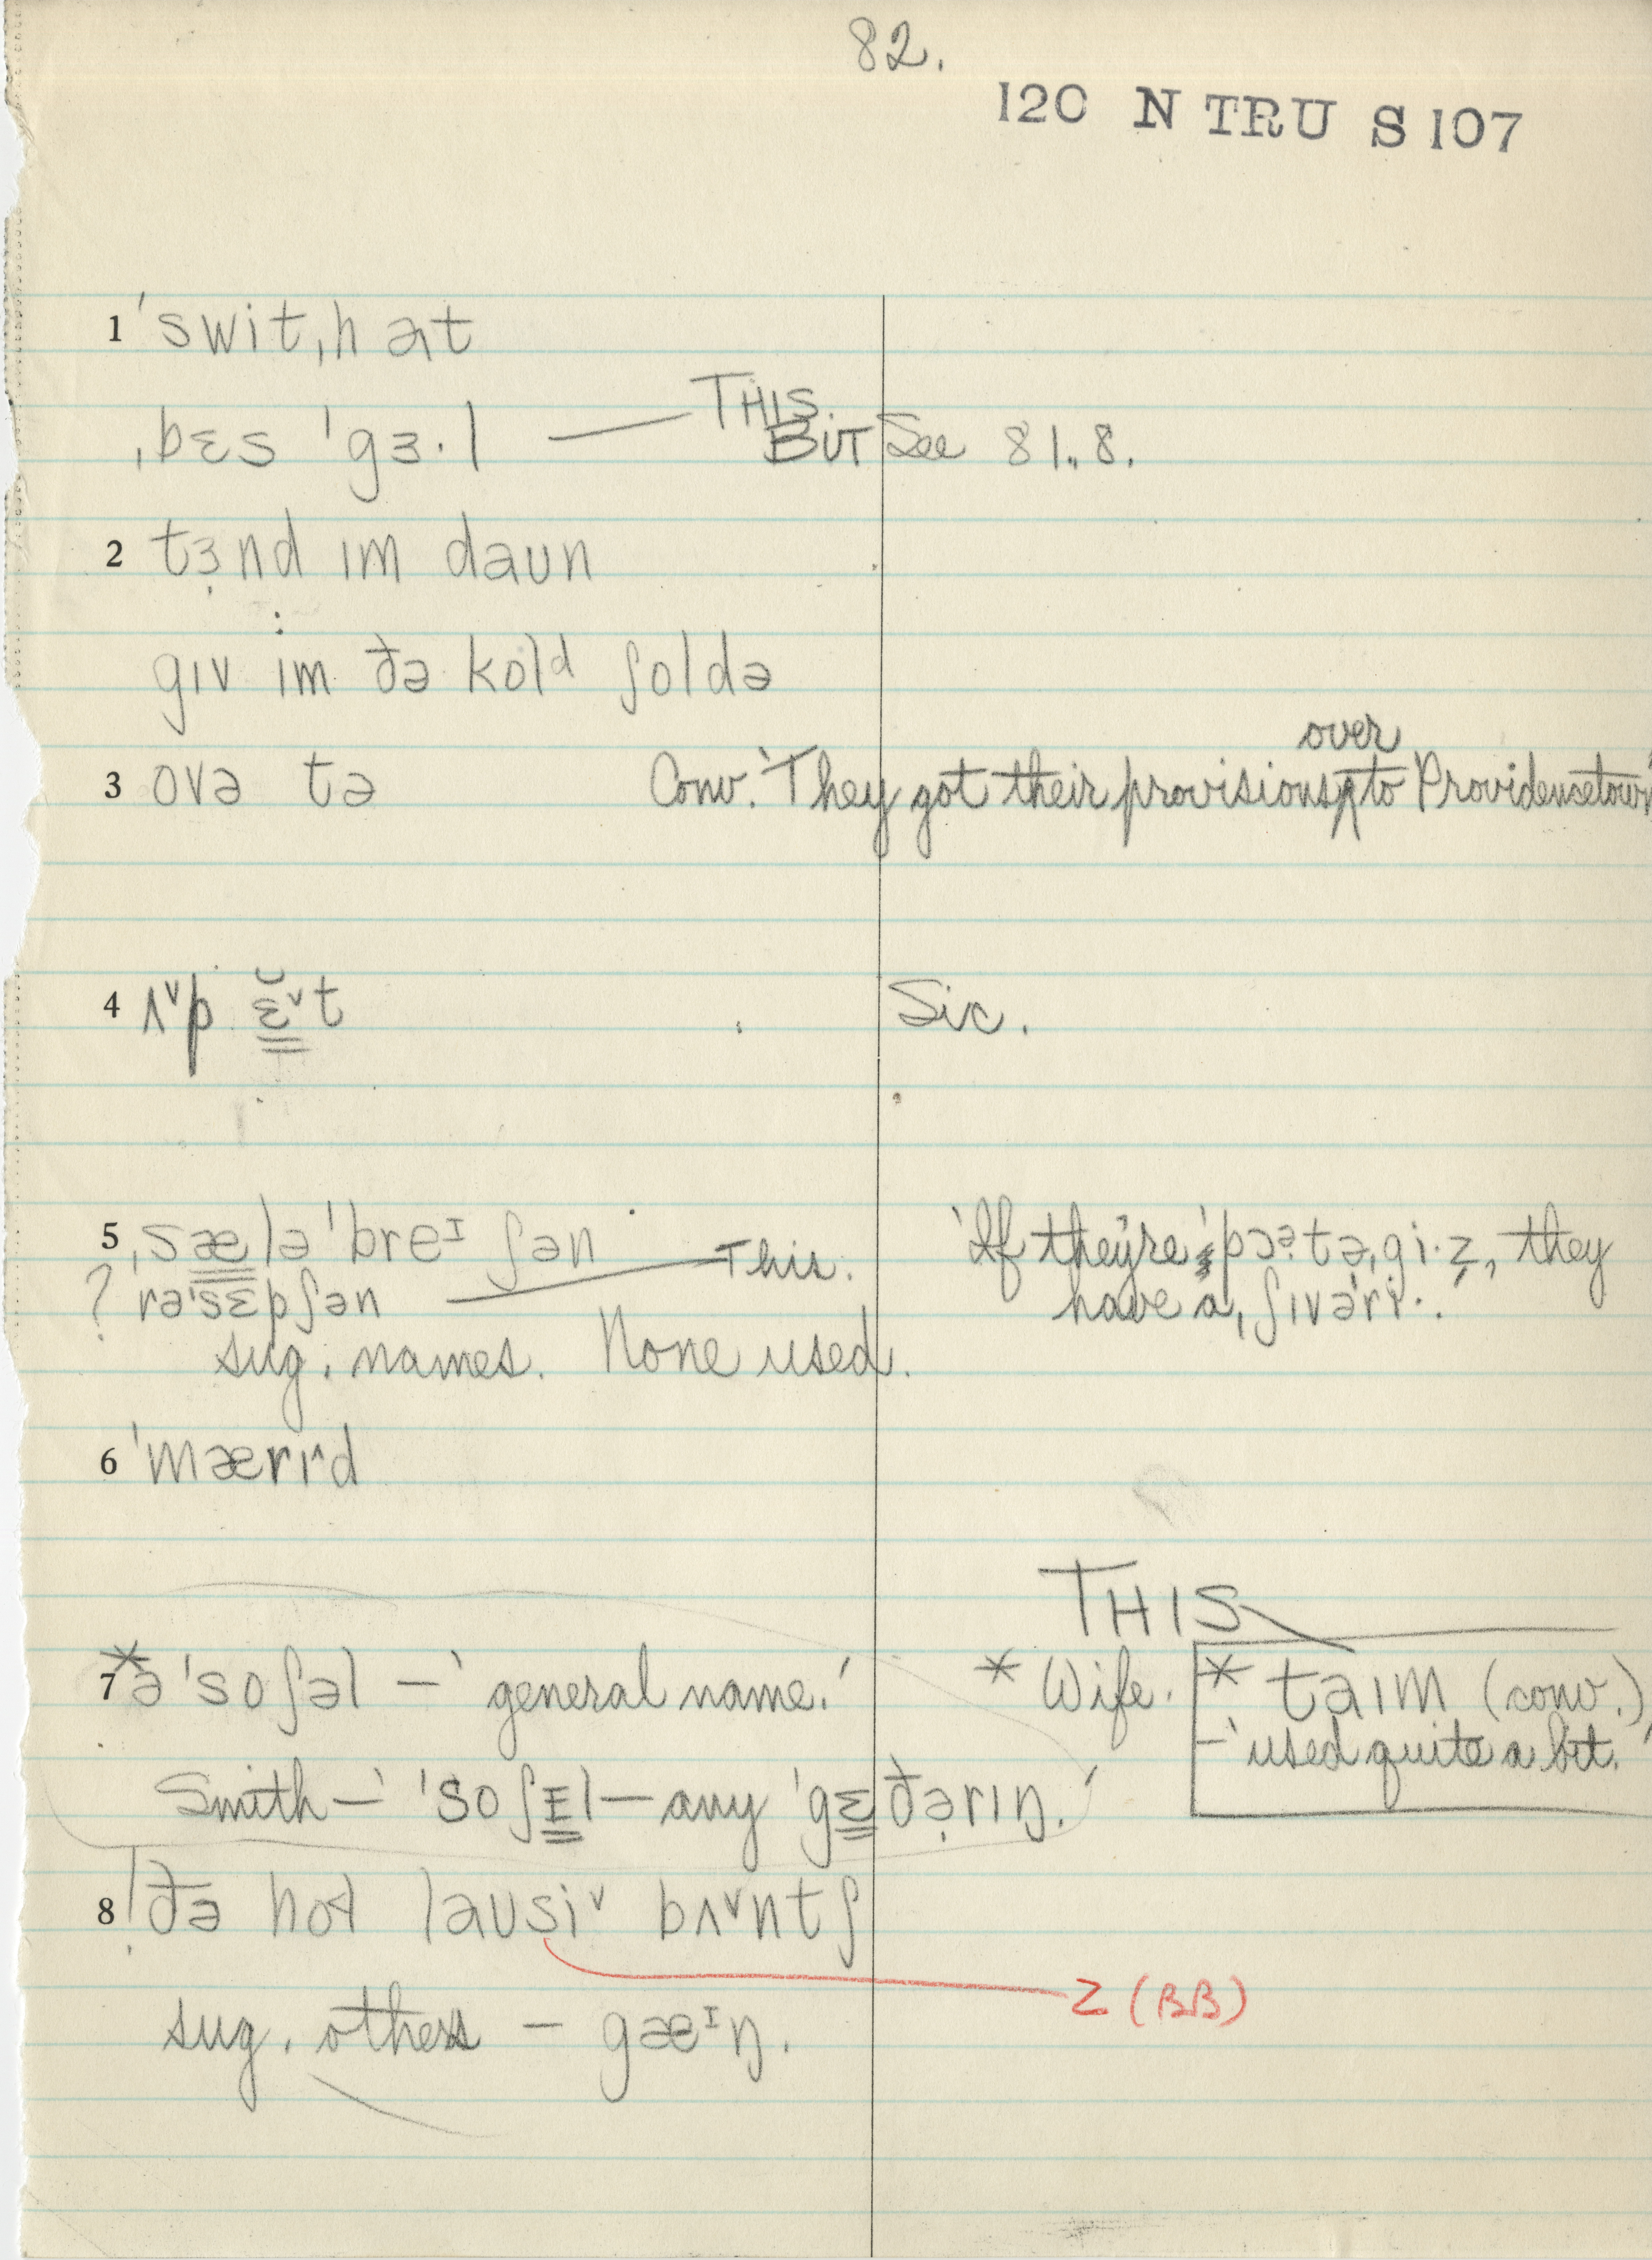 82.
120 N TRU S 107
1 ˈswitˌhɑt
ˌbɛs ˈgɜ·l — THIS.
BUT See 81.8.
2 tɜ̣nd ɪm daun
gɪv im ðə kolᵈ ʃoldə
over
3 ovə tə Conv. 'They got their provisions ^ to Providencetown'
4 ʌᵛp ɛ̳̆ᵛt Sic.
5 ˌsæ̳ləˈbreᴵʃən 'If they're ˈpɔᵊ̣təˌgi·ẓ, they
? rəˈsɛpʃən — This. have a ˌʃɪvəˈri·.'
sug. names. None used.
6 ˈmærɪ^d
THIS
7 * əˈsoʃəl — 'general name.' * Wife. * taɪm (conv.)
— 'used quite a bit.'
Smith — 'ˈsoʃɪ̳l — any ˈgɛ̳ðə̣rɪŋ.'
8 ! ðə hol lausiᵛ bʌᵛntʃ
z (BB)
sug. others — gæᴵŋ.